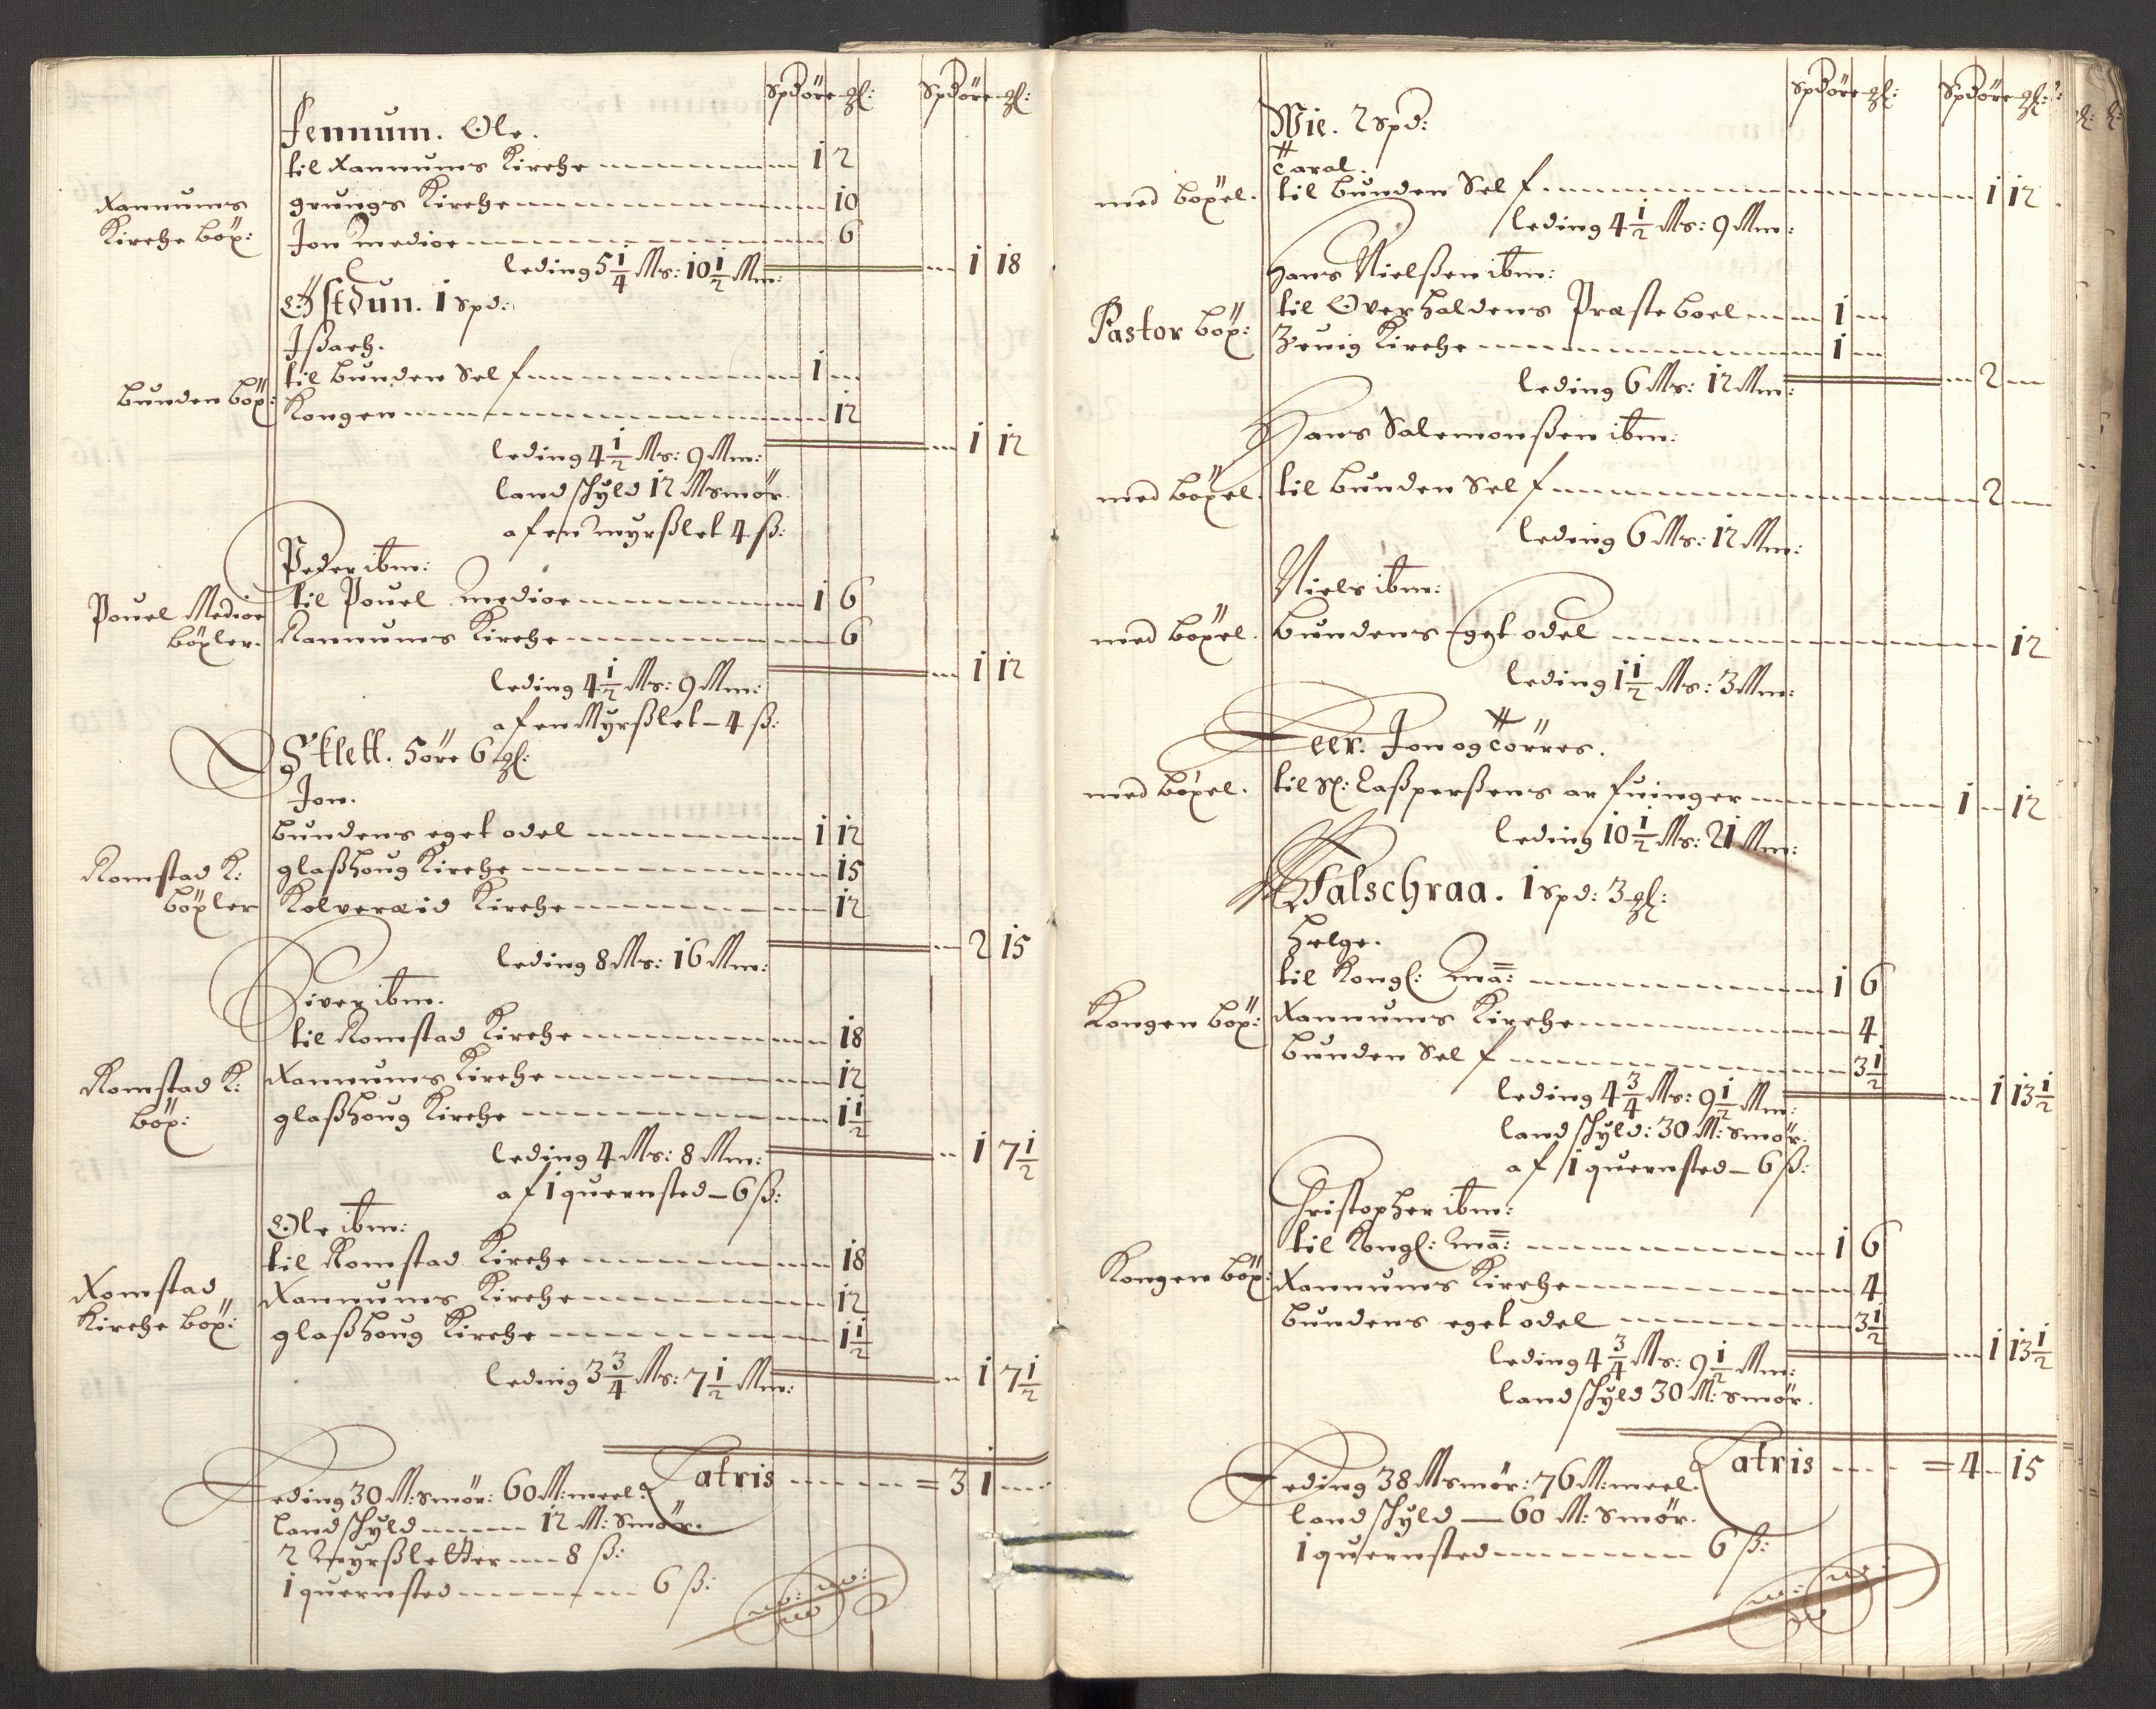 Spd öre gl: Spd öre gl:
Fennum. Ole.
til Rannums Kirche 1 2
Rannums Kirche böx:
grungs Kirche 10
Jon Medioe 6
leding 5 1/4 Ms: 10 1/2 Mm: 1 18
Östdun. 1 Spd:
Jßach.
til bunden Self 1
bunden böx:
Kongen 12
leding 4 1/2 Ms: 9 Mm: 1 12
landschyld 12 M smör.
af en myrßlet 4 ß:
Peder ibm:
til Pouel Medioe 1 6
Pouel Medioe böxler.
Rannums Kirche 6
leding 4 1/2 Ms: 9 Mm: 1 12
af en Myrßlet - 4 ß:
Sklett. 5 öre 6 gl:
Jon.
bundens eget odel 1 12
Romstad K: böxler
glaßhoug Kirche 15
Kolveræid Kirche 12
leding 8 Ms: 16 Mm: 2 15
Siver ibm.
til Romstad Kirche 18
Romstad K: böx:
Rannums Kirche 12
glaßhoug Kirche 1 1/2
leding 4 Ms: 8 Mm: 1 7 1/2
af 1 quernsted - 6 ß:
Ole ibm:
til Romstad Kirche 18
Romstad Kirche böx:
Rannums Kirche 12
glaßhoug Kirche 1 1/2
leding 3 3/4 Ms: 7 1/2 Mm: 1 7 1/2
Latris = 3 1
Leding 30 M: smör: 60 M: meel:
landschyld 12 M: Smör.
2 Myrßletter 8 ß:
1 quernsted 6 ß:
Spd öre gl: Spd öre gl:
Wie. 2 Spd:
Taral.
med böxel. til bunden Self 1 12
leding 4 1/2 Ms: 9 Mm:
Hans Nielßen ibm:
til Overhaldens Præsteboel 1
Pastor böx:
Zevig Kirche 1
leding 6 Ms: 12 Mm: 2
Hans Salemonßen ibm:
med böxel. til bunden Self 2
leding 6 Ms: 12 Mm:
Niels ibm:
med böxel. bundens Eget odel 12
leding 1 1/2 Ms: 3 Mm:
Leer. Jon og Törres.
med böxel. til Sl: Caßperßens arfuinger 1 12
leding 10 1/2 Ms: 21 Mm:
Halschraa. 1 Spd: 3 gl:
Helge.
til Kongl: Ma: 1 6
Kongen böx: Rannums Kirche 4
bunden Self 3 1/2
leding 4 3/4 Ms: 9 1/2 Mm: 1 13 1/2
landschyld: 30 M: smör.
af 1 quernsted - 6 ß:
Christopher ibm:
til Kongl: Ma: 1 6
Kongen böx: Rannums Kirche 4
bundens eget odel 3 1/2
leding 4 3/4 Ms: 9 1/2 Mm: 1 13 1/2
landschyld 30 M: smör.
Latris = 4 15
Leding 38 M smör: 76 M: meel.
landschyld - 60 M: Smör.
1 quernsted 6 ß: